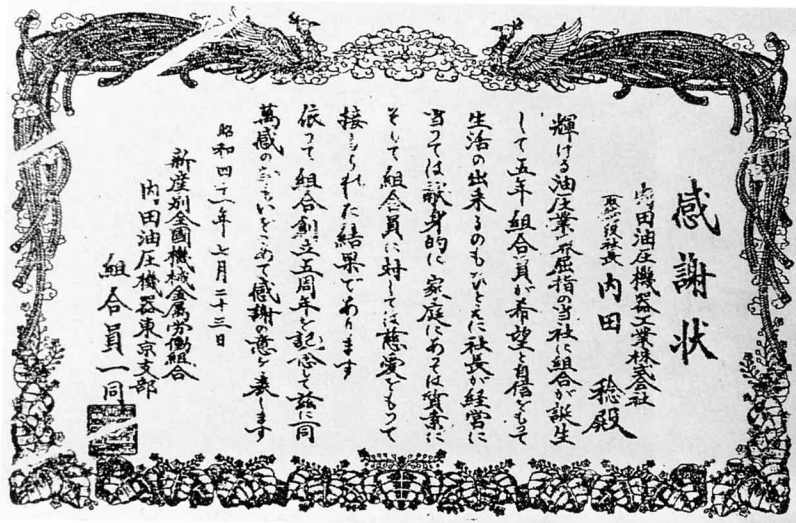 感謝状
内田油圧機器工業株式会社
取締役社長 内田 稔殿
輝ける油圧業界屈指の当社に組合が誕生
して五年組合員が希望と自信をもって
生活の出来るのもひとえに社長が経営に
当っては献身的に家庭にあっては質素に
そして組合員に対しては慈愛をもって
接しられた結果であります
依って組合創立五周年を記念して茲に同
萬感の思いをこめて感謝の意を表します
昭和四十二年七月二十三日
新産別全國機械金属労働組合
内田油圧機器東京支部
組合員一同